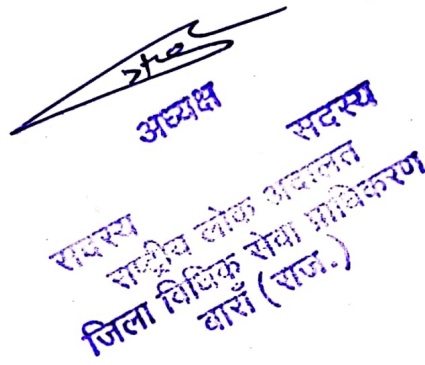 अध्यक्ष सदस्य
सदस्य
राष्ट्रीय लोक अदालत
जिला विधिक सेवा प्राधिकरण
बाराँ (राज.)